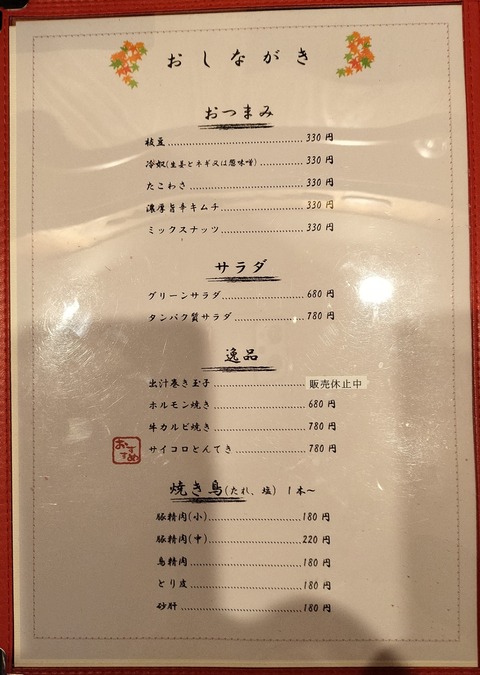 おしながき
おつまみ
枝豆 330 円
冷奴(生姜とネギ又は葱味噌) 330 円
たこわさ 330 円
濃厚旨辛キムチ 330 円
ミックスナッツ 330 円
サラダ
グリーンサラダ 680 円
タンパク質サラダ 780 円
逸品
出汁巻き玉子 販売休止中
ホルモン焼き 680 円
牛カルビ焼き 780 円
おすすめ サイコロとんてき 780 円
焼き鳥(たれ、塩) 1本～
豚精肉(小) 180 円
豚精肉(中) 220 円
鳥精肉 180 円
とり皮 180 円
砂肝 180 円